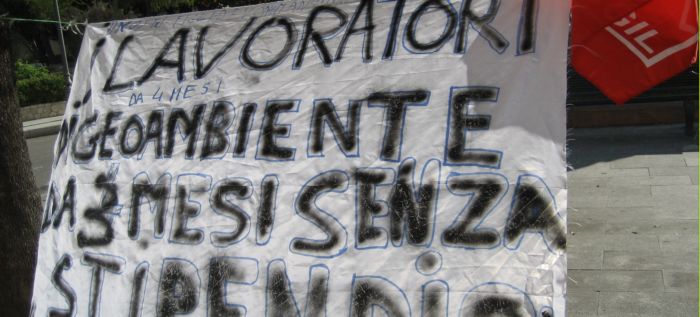 I LAVORATORI
DA 4 MESI
DI GEOAMBIENTE
DA 3 MESI SENZA
STIPENDIO